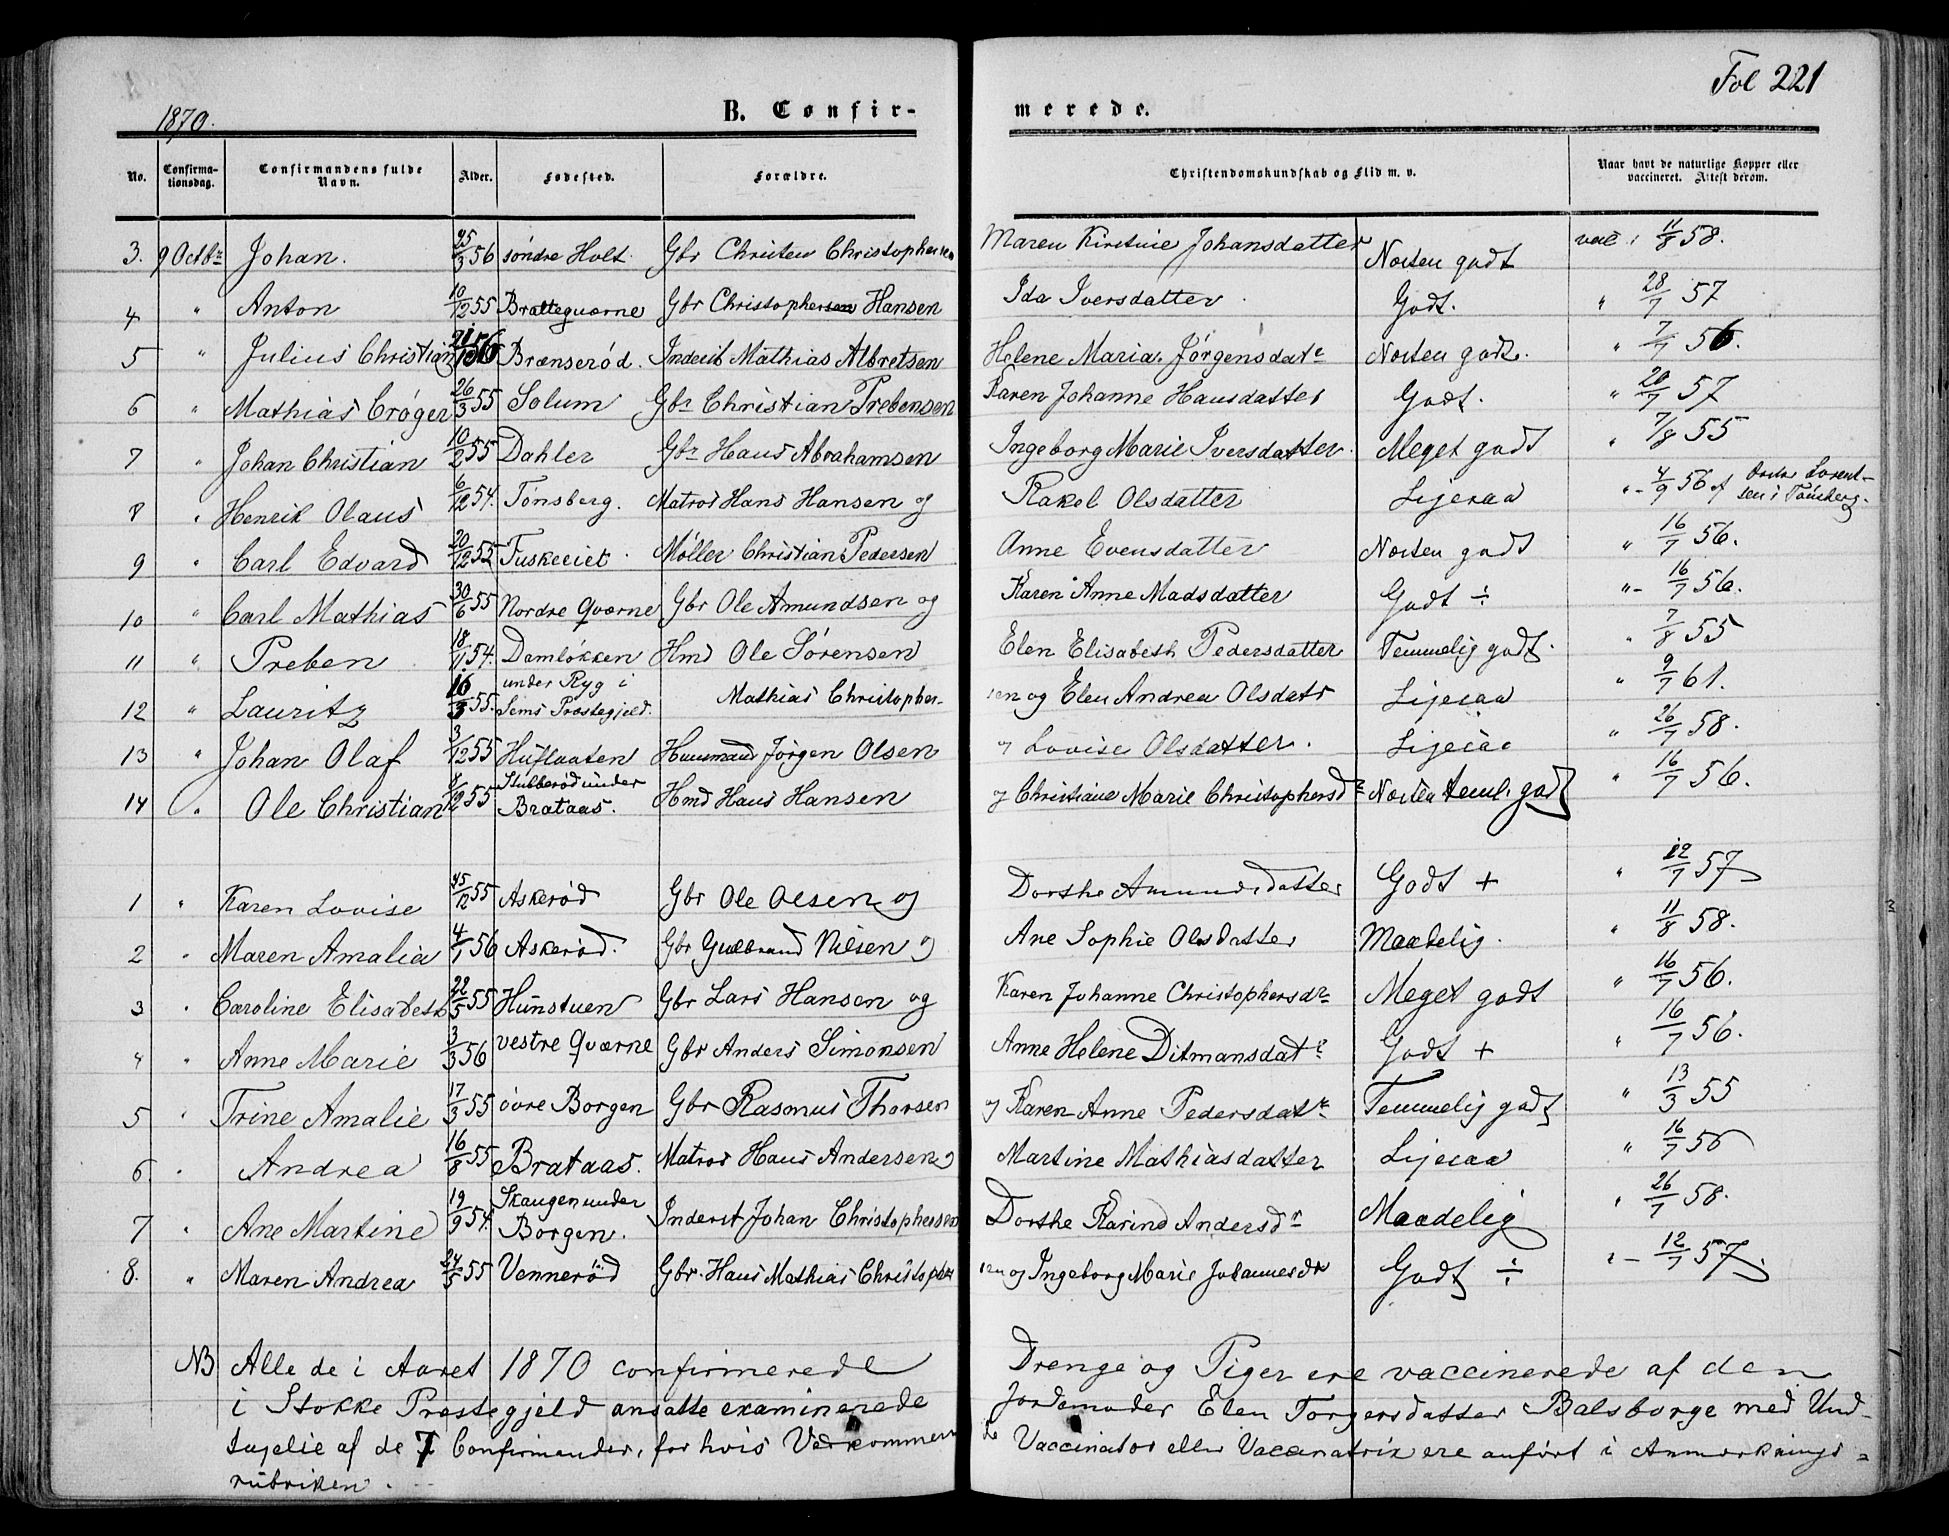 Fol 221
1870.
B. Confir-
merede.
No. Confirma-tionsdag. Confirmandens fulde Navn. Alder. Fødested. Forældre. Christendomskundskab og Flid m. v. Naar havt de naturlige Kopper eller vaccineret. Attest derom.
3. 9 Octbr Johan. 25/3 56 søndre Holt. Gbr Christen Christophersen Maren Kirstine Johansdatter Næsten godt vac. 11/8 58.
4 " Anton 10/12 55 Brattequærne Gbr Christophersen Hansen Ida Iversdatter Godt. " 28/7 57
5 " Julius Christian 56 Brænserød. Inderst Mathias Albretsen Helene Maria Jørgensdatr Næsten godt. " 7/7 56.
6 " Mathias Crøger 26/3 55 Solum Gbr Christian Prebensen Karen Johanne Hansdatter Godt. " 20/7 57
7 " Johan Christian 10/2 55 Dahler Gbr Hans Abrahamsen Ingeborg Marie Iversdatter. Meget godt " 7/8 55
8 " Henrik Olaus 6/12 54. Tønsberg. Matros Hans Hansen og Rakel Olsdatter Ligesaa " 4/9 56 af Doctor Lorent-sen i Tønsberg.
9 " Carl Edvard 20/12 55 Fuskeeiet. Møller Christian Pedersen Anne Evensdatter Næsten godt " 16/7 56.
10 " Carl Mathias 30/6 55 Nordre Quærne Gbr Ole Amundsen og Karen Anne Madsdatter Godt ÷ " 16/7 56.
11 " Preben 18/11 54. Damløkken Hmd Ole Sørensen Elen Elisabeth Pedersdatter Temmelig godt. " 7/8 55
12 " Lauritz 16/3 55. under Ryg i Sems Præstegjeld. Mathias Christopher-sen og Elen Andrea Olsdatr Ligesaa " 9/7 61.
13 " Johan Olaf 3/12 55 Huflaaten Huusmand Jørgen Olsen og Lovise Olsdatter. Ligesaa " 26/7 58.
14 " Ole Christian /12 55 Stubberød under Brataas. Hmd Hans Hansen og Christiane Marie Christophersdr Næsten teml. godt " 16/7 56.
1 " Karen Lovise 25/12 55 Askerød Gbr Ole Olsen og Dorthe Amundsdatter Godt + " 12/7 57
2 " Maren Amalia 4/1 56 Askerød. Gbr Gulbrand Nilsen og Ane Sophie Olsdatter Maadelig. " 11/8 58.
3 " Caroline Elisabeth 22/5 55 Hunstuen Gbr Lars Hansen og Karen Johanne Christophersdr Meget godt " 16/7 56.
4 " Anne Marie 3/3 56 vestre Quærne Gbr Anders Simonsen Anne Helene Ditmansdatr Godt + " 16/7 56.
5 " Trine Amalie 17/3 55 øvre Borgen Gbr Rasmus Thorsen og Karen Anne Pedersdatr Temmelig godt " 13/3 55
6. " Andrea 16/8 55 Brataas. Matros Hans Andersen og Martine Mathiasdatter Ligesaa " 16/7 56
7 " Ane Martine 19/9 54. Skaugen under Borgen. Inderst Johan Christophersen Dorthe Karine Andersdr Maadelig " 26/7 58.
8. " Maren Andrea 24/5 55 Vennerød Gbr. Hans Mathias Christopher-sen og Ingeborg Marie Johannesdr Godt ÷ " 12/7 57.
NB Alle de i Aaret 1870 confirmerede Drenge og Piger ere vaccinerede af den
i Stokke Prestegjeld ansatte examinerede Jordemoder Elen Torgersdatter Balsborge med Und-
tagelse af de 7 Confirmander, for hvis Vedkommende Vaccinator eller Vaccinatrix ere anført i Anmærknings-
rubriken.